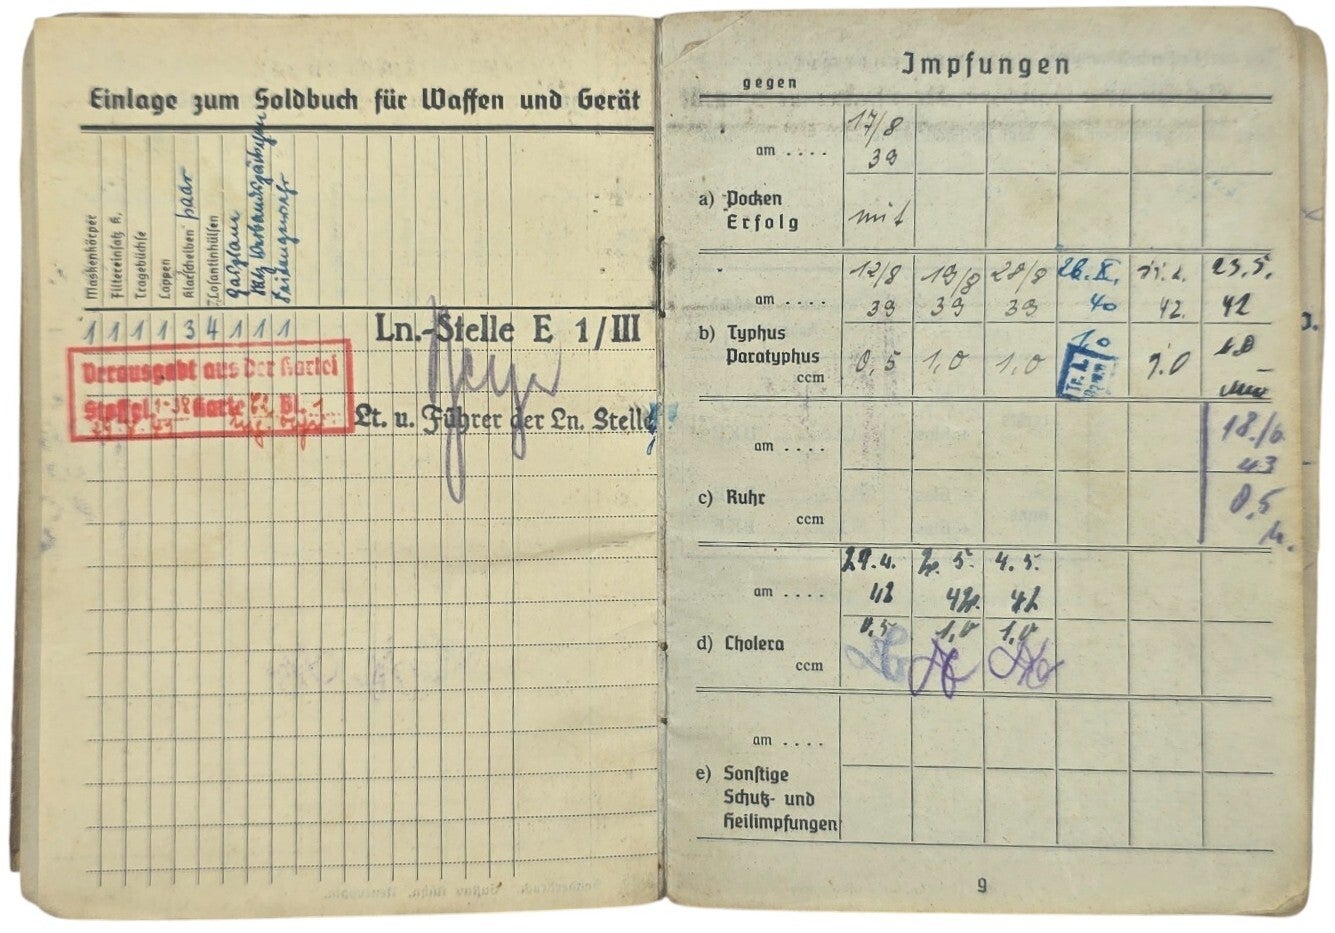 Einlage zum Soldbuch für Waffen und Gerät
Maskenkörper
Filtereinsatz K.
Tragebüchse
Lappen
Klarscheiben paar
Losantinhülsen
Gasplane
Verbandspäckchen
1 1 1 1 3 4 1 1 1
Ln.-Stelle E 1/III
Verausgabt aus der Kartei
Staffel Karte Bl. 1
Lt. u. Führer der Ln. Stelle
Impfungen
gegen
17/8
am .... 39
a) Pocken
Erfolg mit
12/8 19/8 28/8 26. X. 23.5.
am .... 39 39 39 40 42. 42
b) Typhus
Paratyphus
ccm 0,5 1,0 1,0 1,0 1.0
18./6.
am .... 43
c) Ruhr 0,5
ccm
29.4. 2. 5. 4. 5.
am .... 42 42. 42
0,5 1,0 1,0
d) Cholera
ccm
am ....
e) Sonstige
Schutz- und
Heilimpfungen
9